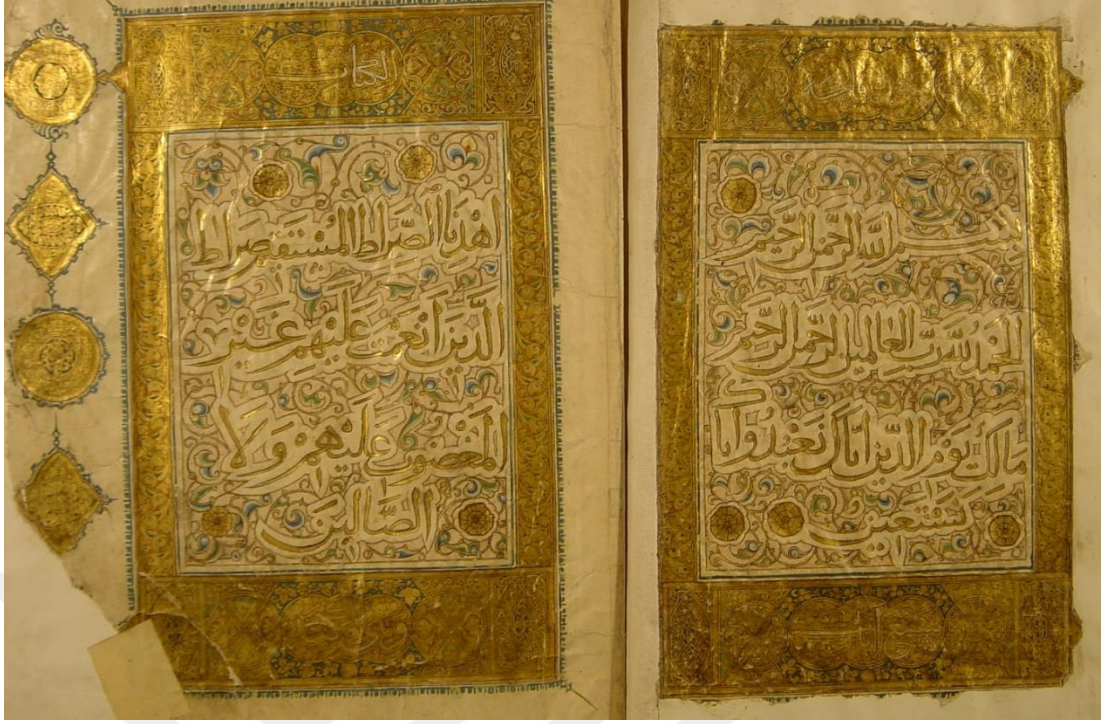 الكتاب
بسم الله الرحمن الرحيم
الحمد لله رب العالمين الرحمن الرحيم
مالك يوم الدين اياك نعبد واياك
نستعين
اهدنا الصراط المستقيم صراط
الذين انعمت عليهم غير
المغضوب عليهم ولا
الضالين